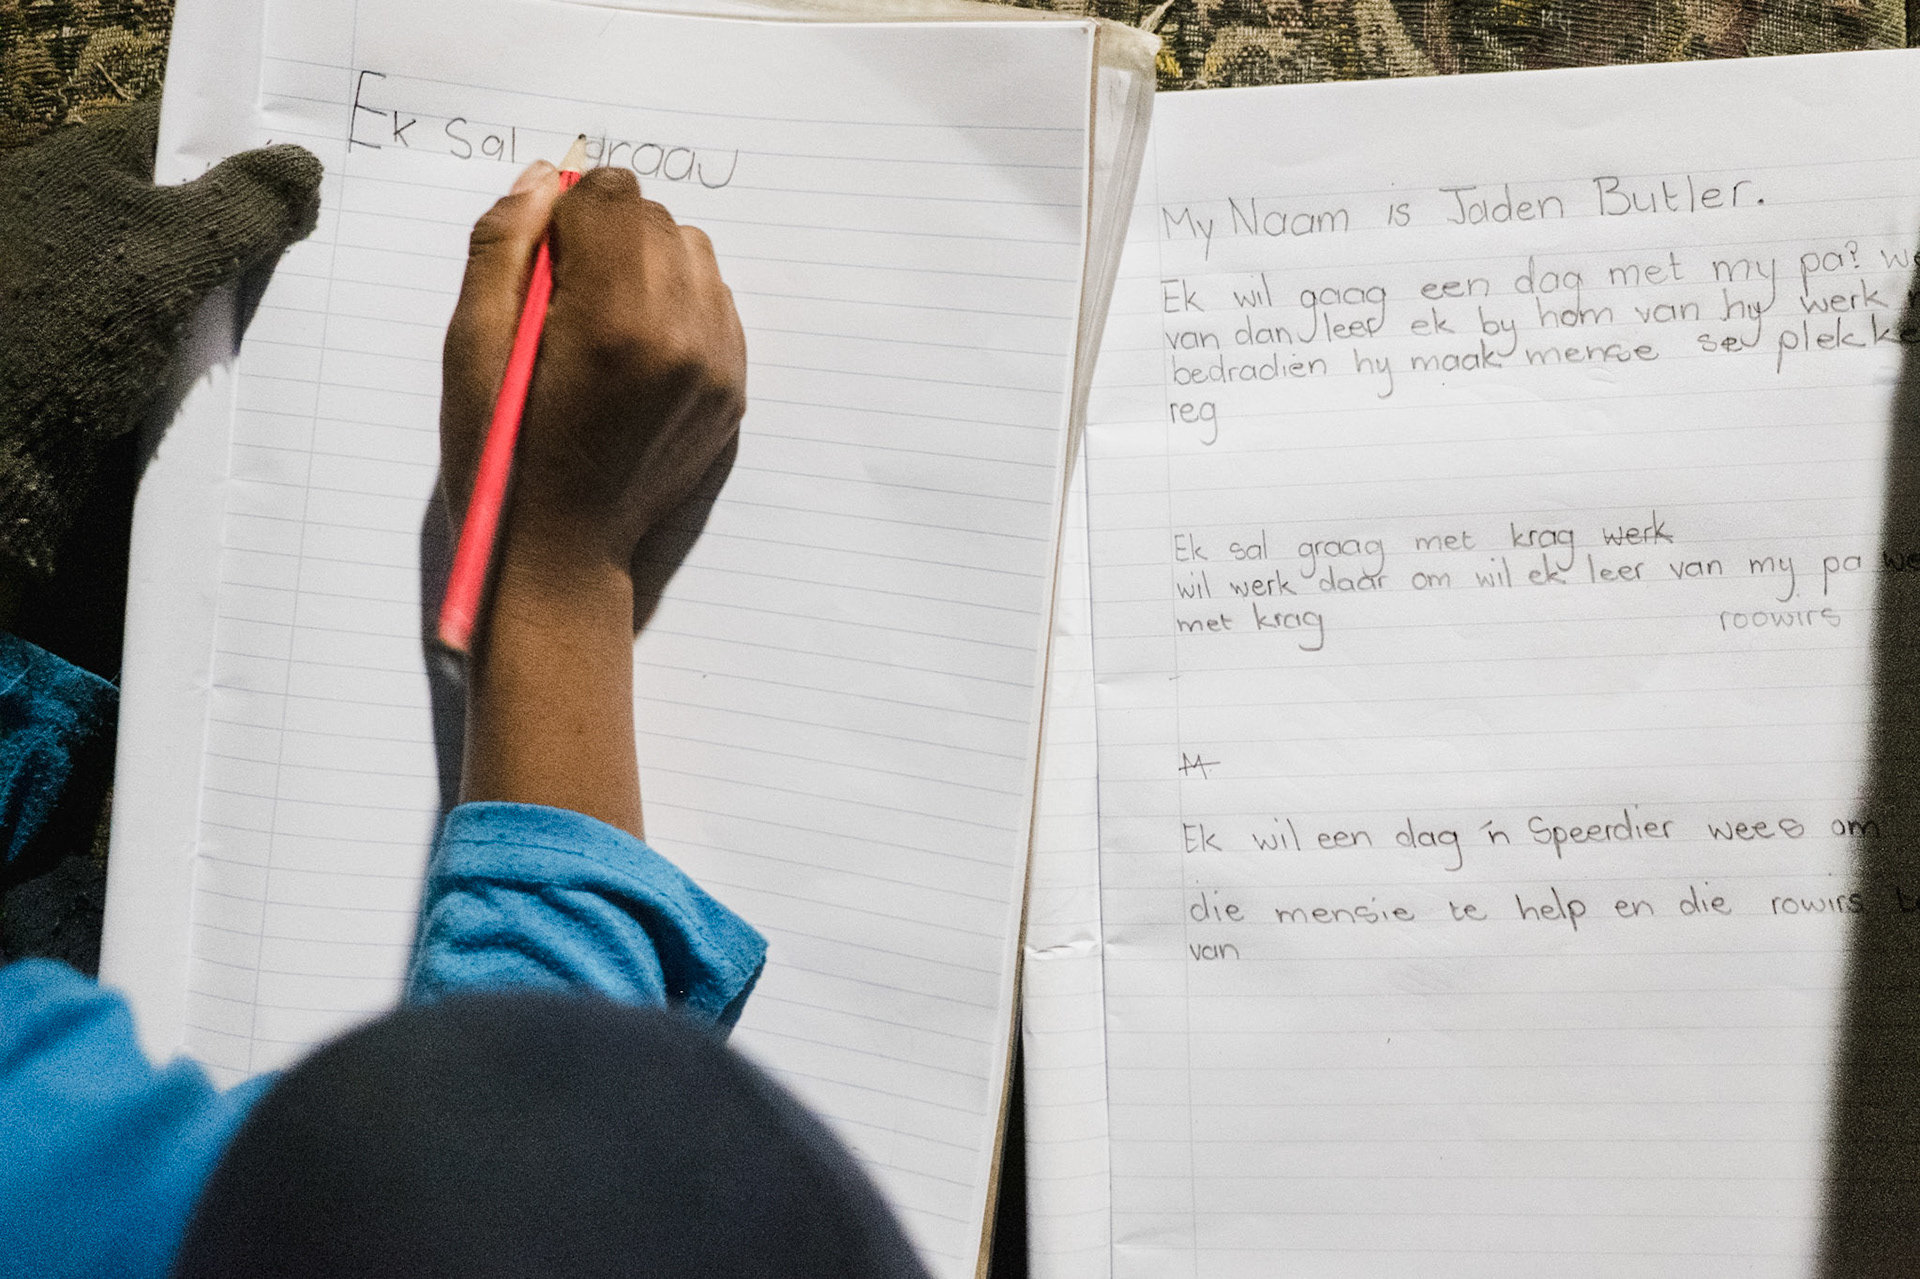 Ek Sal graau
My Naam is Jaden Butler.
Ek wil gaag een dag met my pa?
van dan leer ek by hom van hy werk
bedradien hy maak mense se plekke
reg
Ek sal graag met krag werk
wil werk daar om wil ek leer van my pa
met krag
roowirs
M
Ek wil een dag 'n Speerdier wees om
die mensie te help en die rowirs
van